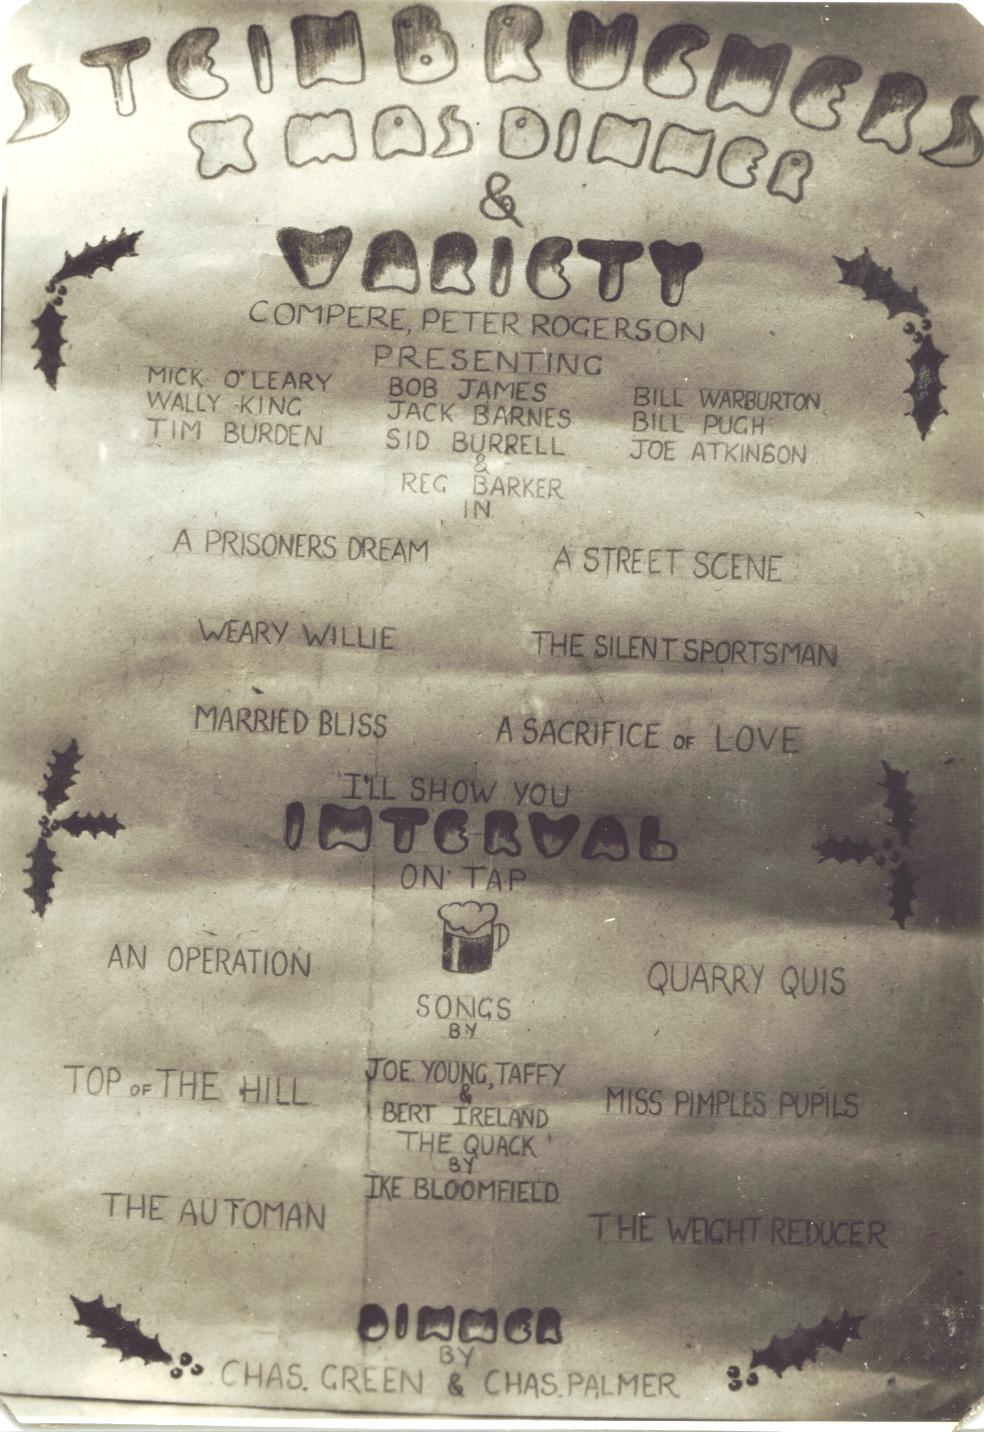 STEINBRUCKNERS
XMAS DINNER
&
VARIETY
COMPERE, PETER ROGERSON
PRESENTING
MICK O'LEARY BOB JAMES BILL WARBURTON
WALLY KING JACK BARNES BILL PUGH
TIM BURDEN SID BURRELL JOE ATKINSON
&
REG BARKER
IN
A PRISONERS DREAM A STREET SCENE
WEARY WILLIE THE SILENT SPORTSMAN
MARRIED BLISS A SACRIFICE OF LOVE
'I'LL SHOW YOU
INTERVAL
ON TAP
AN OPERATION QUARRY QUIS
SONGS
BY
TOP OF THE HILL JOE YOUNG, TAFFY MISS PIMPLES PUPILS
&
BERT IRELAND
'THE QUACK'
BY
THE AUTOMAN IKE BLOOMFIELD THE WEIGHT REDUCER
DINNER
BY
CHAS. GREEN & CHAS. PALMER